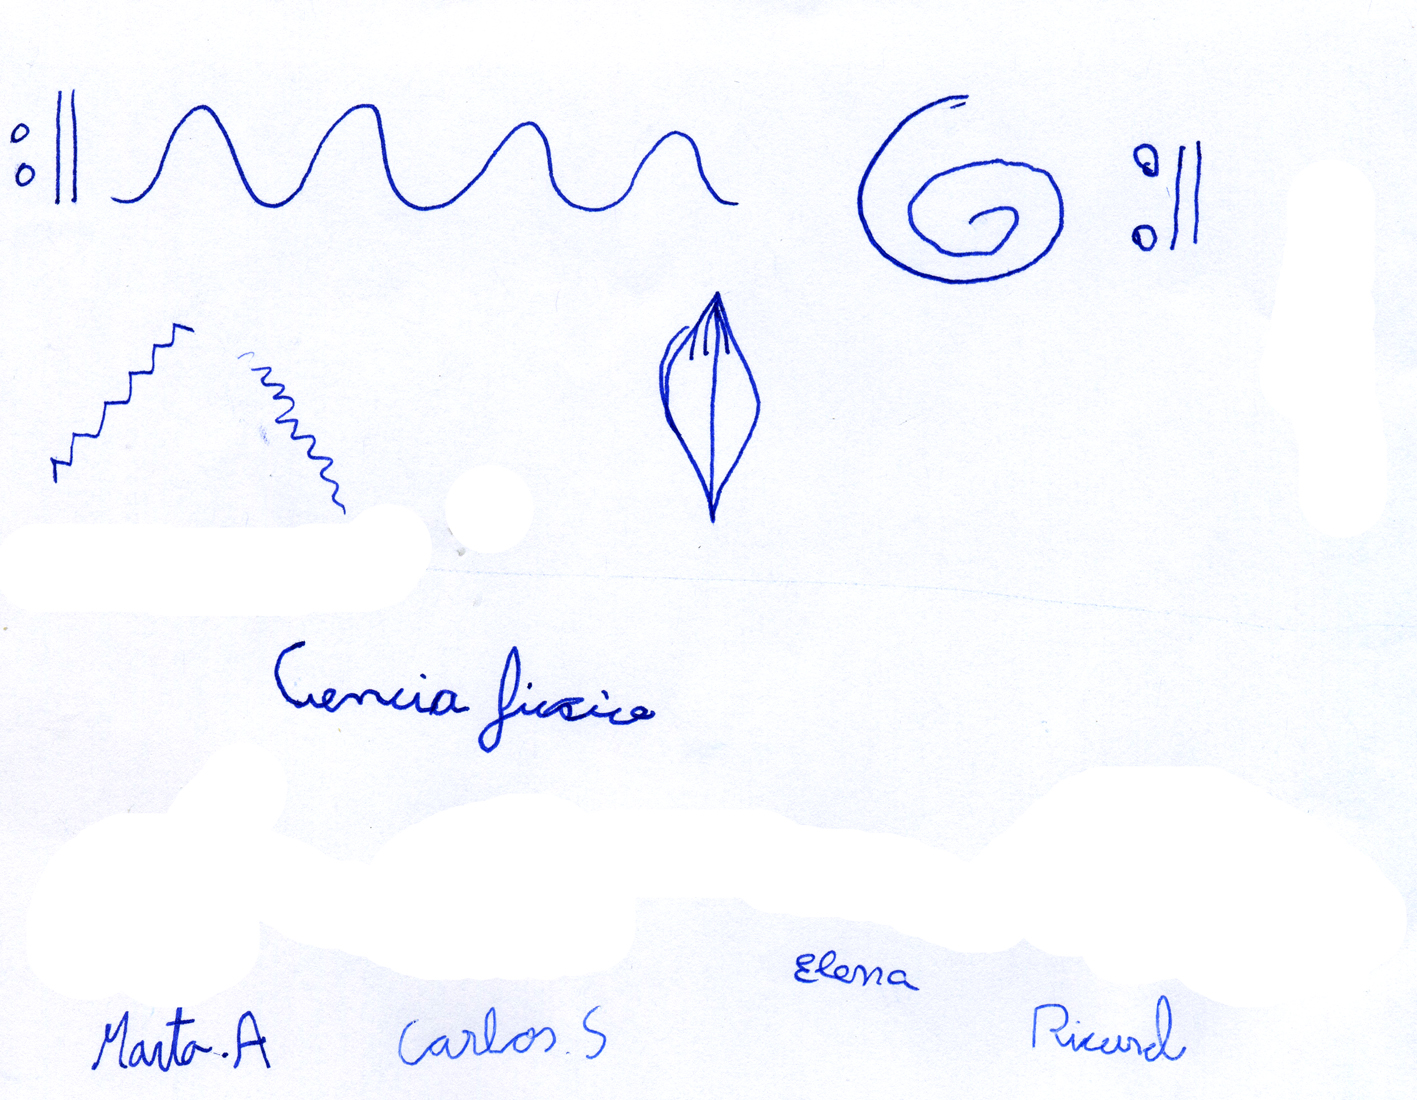 Ciencia ficsico
Elena
Marta.A Carlos.S Ricard